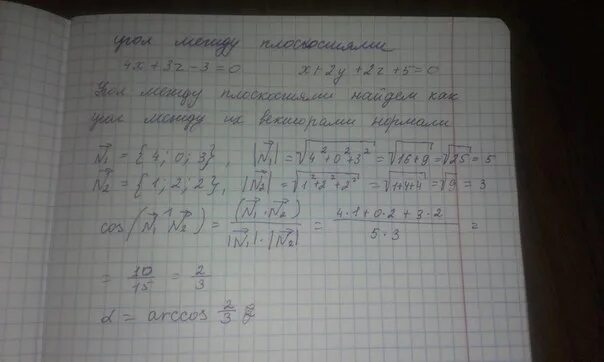 угол между плоскостями
4x + 3z - 3 = 0     x + 2y + 2z + 5 = 0
Угол между плоскостями найдем как
угол между их векторами нормали
N₁ = {4; 0; 3}, |N₁| = √(4² + 0² + 3²) = √(16 + 9) = √25 = 5
N₂ = {1; 2; 2}, |N₂| = √(1² + 2² + 2²) = √(1 + 4 + 4) = √9 = 3
cos(N₁ ^ N₂) = (N₁ · N₂) / (|N₁| · |N₂|) = (4·1 + 0·2 + 3·2) / (5·3) =
= 10/15 = 2/3
α = arccos 2/3